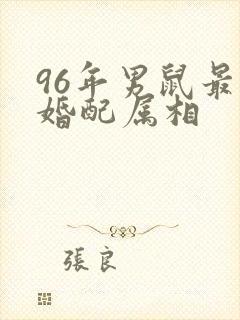 96年男鼠最
婚配属相
張良